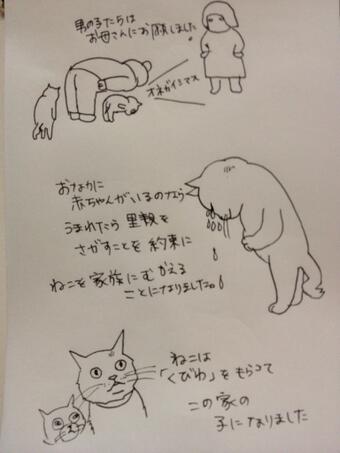 男の子たちは
お母さんにお願しました
オネガイシマス
おなかに
赤ちゃんがいるのなら
うまれたら里親を
さがすことを約束に
ねこを家族にむかえる
ことになりました。
ねこは
「くびわ」をもらって
この家の
子になりました